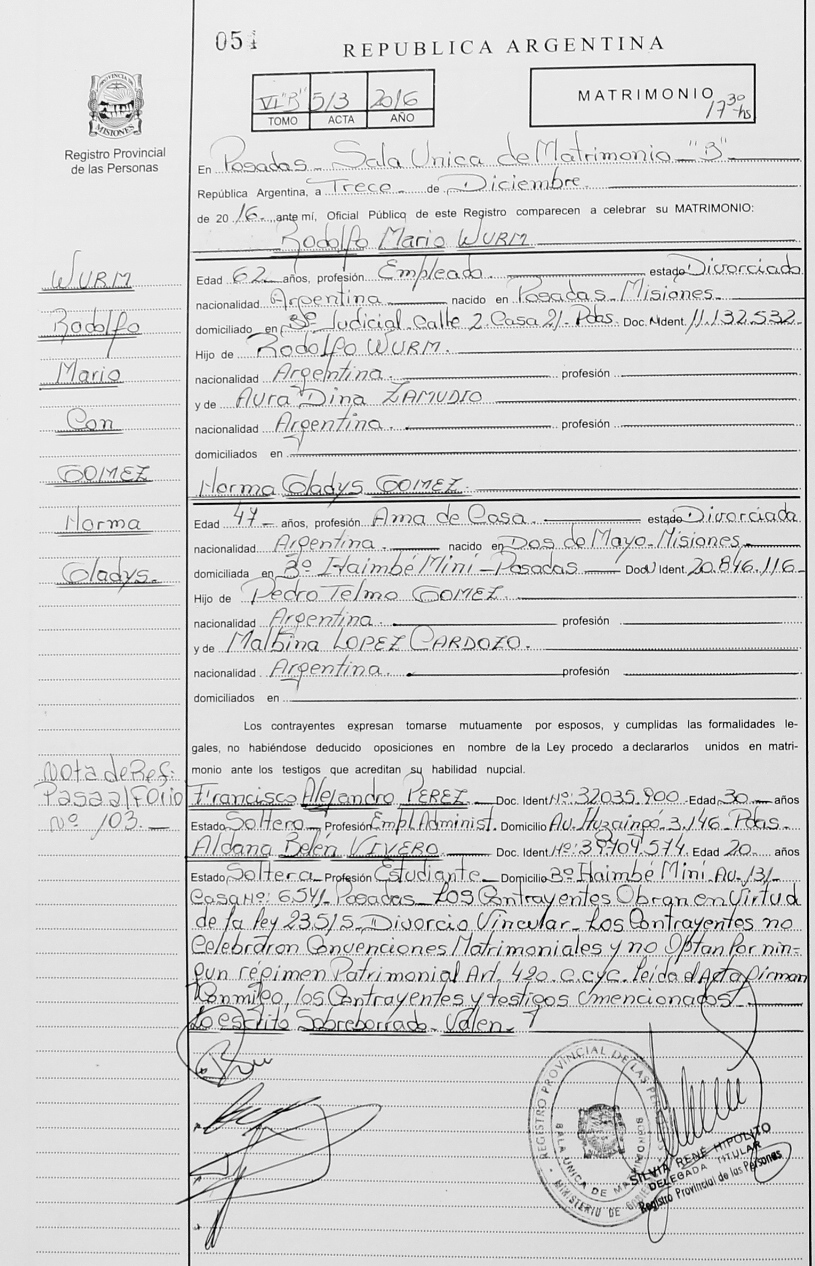 05
REPUBLICA ARGENTINA
PROVINCIA DE MISIONES
Registro Provincial
de las Personas
VI "B" 513 2016
TOMO ACTA AÑO
MATRIMONIO
17 30 hs
En Posadas - Sala Unica de Matrimonio "B"
República Argentina, a Trece - de Diciembre.
de 20 16 ante mí, Oficial Público de este Registro comparecen a celebrar su MATRIMONIO:
Rodolfo Mario WURM
Edad 62 años, profesión Empleado estado Divorciado
nacionalidad Argentina nacido en Posadas - Misiones.
domiciliado en Bº Judicial Calle 2. Casa 21- Pdas. Doc. N Ident. 11.132.532
Hijo de Rodolfo WURM.
nacionalidad Argentina. profesión
y de Aura Dina ZAMUDIO
nacionalidad Argentina. profesión
domiciliados en
Norma Gladys GOMEZ.
Edad 47 - años, profesión Ama de Casa. estado Divorciada
nacionalidad Argentina. nacido en Dos de Mayo - Misiones
domiciliada en Bº Itaimbé Mini - Posadas Doc U Ident. 20.846.116
Hijo de Pedro Telmo GOMEZ.
nacionalidad Argentina. profesión
y de Malbina LOPEZ CARDOZO.
nacionalidad Argentina. profesión
domiciliados en
Los contrayentes expresan tomarse mutuamente por esposos, y cumplidas las formalidades le-
gales, no habiéndose deducido oposiciones en nombre de la Ley procedo a declararlos unidos en matri-
monio ante los testigos que acreditan su habilidad nupcial.
Francisco Alejandro PEREZ Doc. Ident. Nº: 32035.900 Edad 30 años
Estado Soltero Profesión Empl. Administ. Domicilio Av. Ituzaingó 3.146 Pdas.
Aldana Belén VIVERO Doc. Ident. Nº: 39704.574 Edad 20 años
Estado Soltera Profesión Estudiante Domicilio Bº Itaimbé Mini. Av. 131-
Casa Nº: 6.541- Posadas - Los Contrayentes Obran en Virtud
de la ley 23.515 - Divorcio Vincular - Los Contrayentes no
Celebraron Convenciones Matrimoniales y no Optan Por nin-
gun régimen Patrimonial Art. 420. C.cyc. Leida el Acta firman
Conmigo, los Contrayentes y testigos mencionados
Lo escrito Sobreborrado - Valen -
WURM
Rodolfo
Mario
Con
GOMEZ
Norma
Gladys.
Nota de Ref:
Pasa al Folio
Nº 103. -
REGISTRO PROVINCIAL DE LAS
SALA UNICA DE
MINISTERIO DE
SILVIA RENÉ HIPOLITO
DELEGADA TITULAR
Registro Provincial de las Personas